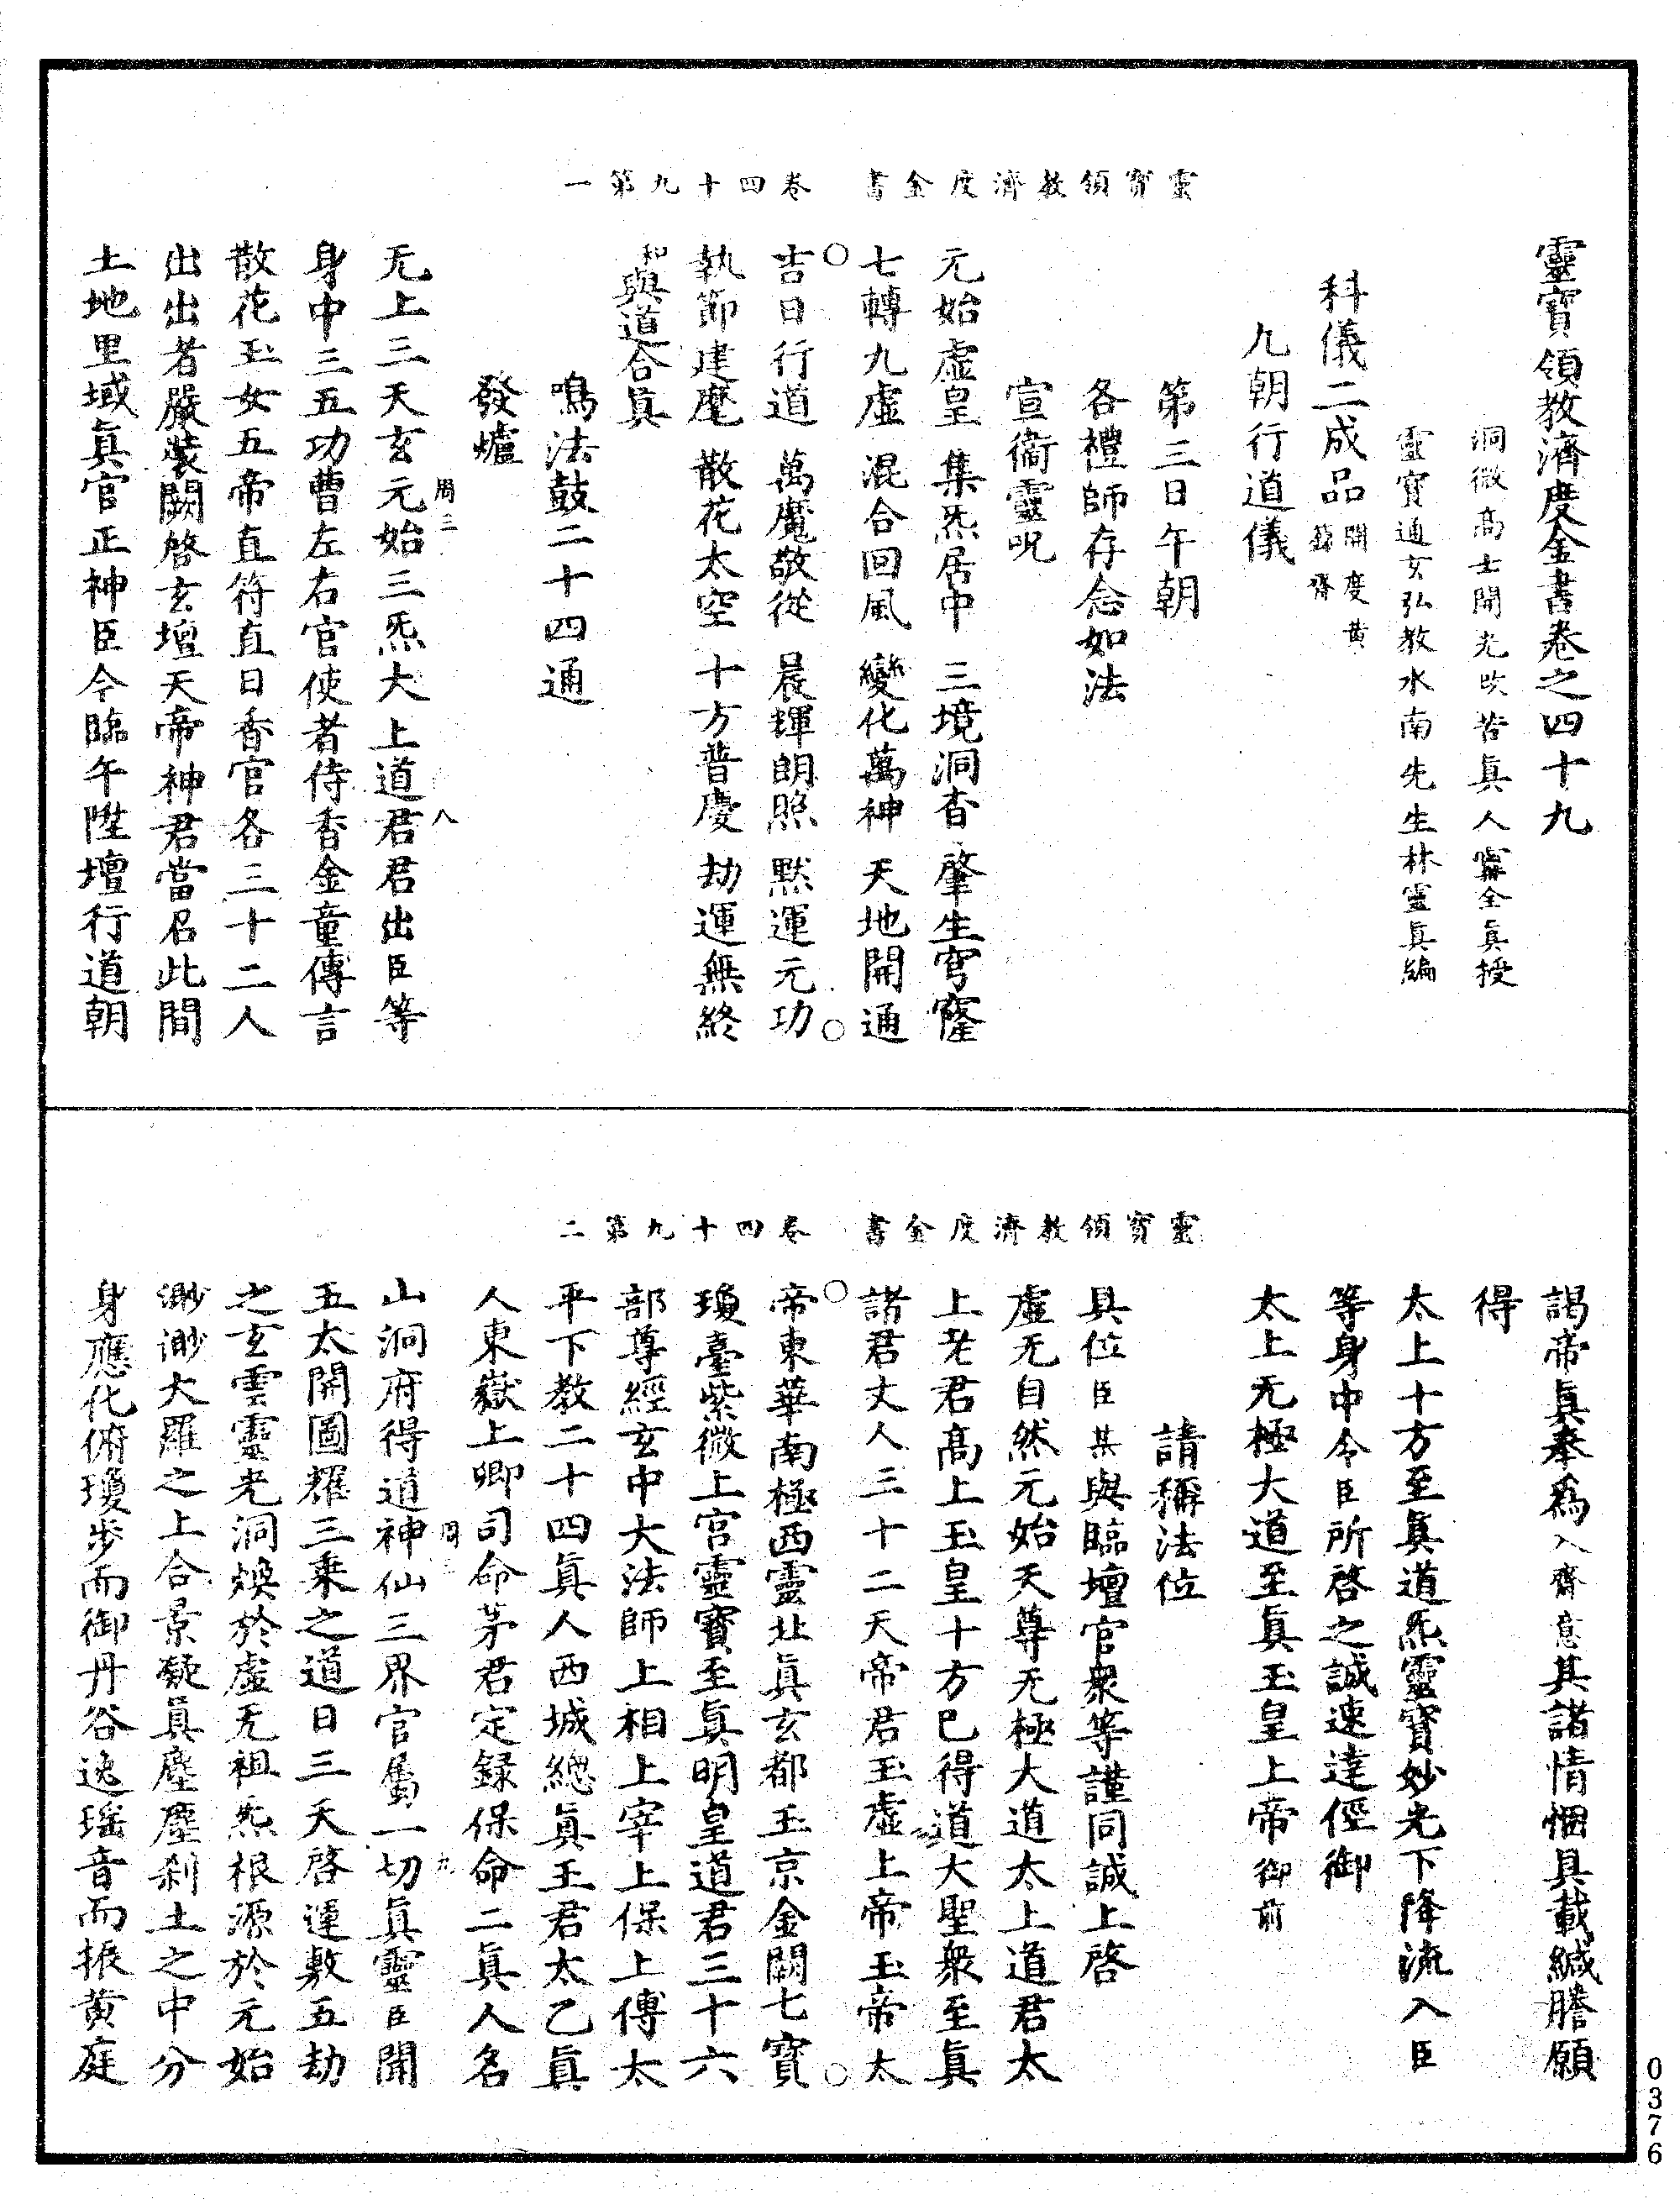 靈寶領教濟度金書　卷四十九第一
靈寶領教濟度金書卷之四十九
洞微高士開光救苦真人甯全真授
靈寶通玄弘教水南先生林靈真編
科儀二成品開度黃籙齋
九朝行道儀
第三日午朝
各禮師存念如法
宣衞靈呪
元始虛皇　集炁居中　三境洞杳　肇生穹窿
七轉九虛　混合回風　變化萬神　天地開通
吉日行道　萬魔敬從　晨輝朗照　默運元功
執節建麾　散花太空　十方普慶　劫運無終
和與道合真
鳴法鼓二十四通
發爐
无上三天玄元始三炁大上道君君出臣等
身中三五功曹左右官使者侍香金童傳言
散花玉女五帝直符直日香官各三十二人
出出者嚴裝闕啓玄壇天帝神君當召此間
土地里域真官正神臣今臨午陞壇行道朝
周三　八
靈寶領教濟度金書　卷四十九第二
謁帝真奉爲入齋意其諸情悃具載緘謄願
得
太上十方至真道炁靈寶妙光下降流入臣
等身中令臣所啓之誠速達徑御
太上无極大道至真玉皇上帝御前
請稱法位
具位臣某與臨壇官衆等謹同誠上啓
虛无自然元始天尊无極大道太上道君太
上老君高上玉皇十方已得道大聖衆至真
諸君丈人三十二天帝君玉虛上帝玉帝太
帝東華南極西靈北真玄都玉京金闕七寶
瓊臺紫微上宮靈寶至真明皇道君三十六
部尊經玄中大法師上相上宰上保上傅太
平下教二十四真人西城總真王君太乙真
人東嶽上卿司命茅君定錄保命二真人名
山洞府得道神仙三界官屬一切真靈臣聞
五太開圖羅三乘之道日三天啓運敷五劫
之玄雲靈光洞煥於虛无祖炁根源於元始
渺渺大羅之上合景凝真塵塵剎土之中分
身應化俯瓊步而御丹谷逸瑤音而振黃庭
周　九
0376